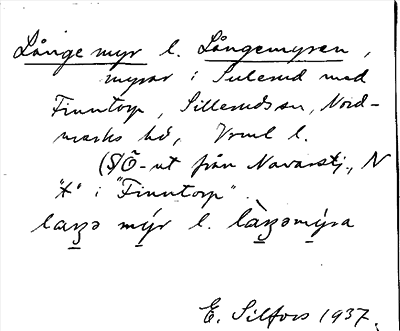 Långemyr l. Långemyren,
myrar i Sulerud med
Finntorp, Silleruds sn, Nord-
marks hd, Vrml l.
(S)Ö-ut från Navarstj., N
"t" i "Finntorp".
laŋə mýr l. làŋəmýra
E. Silfors 1937.